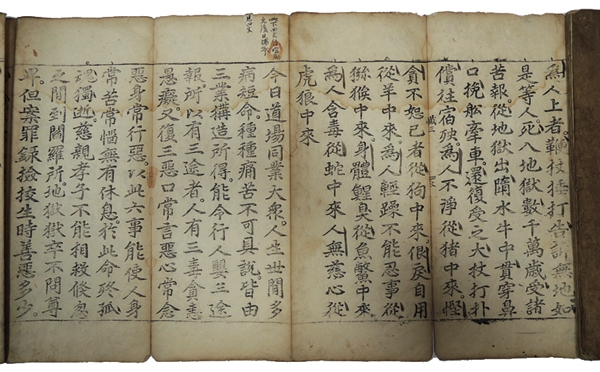 爲人上者鞭杖捶打告訴無地如
是等人死入地獄數千萬歲受諸
苦報從地獄出墮水牛中貫穿鼻
口挽舩牽車還復受之大杖打扑
償往宿殃爲人不淨從猪中來慳
貪不恕己者從狗中來佷戾自用
從羊中來爲人輕躁不能忍事從
猕猴中來身體腥臭從魚鱉中來
爲人含毒從蛇中來人無慈心從
虎狼中來
今日道場同業大衆人生世間多
病短命種種痛苦不可具說皆由
三業構造所得能令行人嬰三途
報所以有三途者人有三毒貪恚
愚癡又復三惡口常言惡心常念
惡身常行惡以此六事能使人身
常苦常惱無有休息於此命終孤
魂獨逝慈親孝子不能相救倏忽
之間到閻羅所地獄獄卒不問尊
卑但案罪錄撿挍生時善惡多少